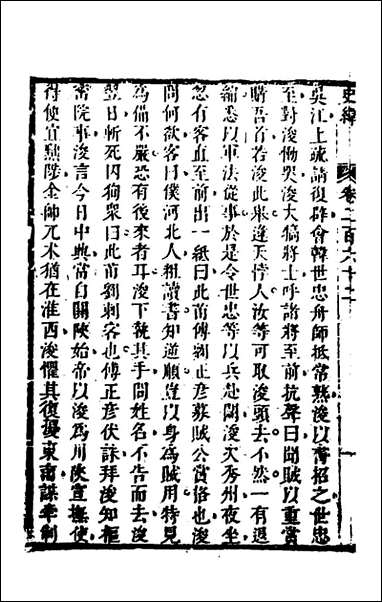 史緯 卷二百六十二
吳江上疏請復辟會韓世忠舟師抵常熟浚以書招之世忠
至對浚慟哭浚大犒將士呼諸將至前抗聲曰聞賊以重賞
購吾首若浚此舉違天悖人汝等可取浚頭去不然一有退
縮悉以軍法從事於是令世忠等以兵赴闕浚次秀州夜坐
忽有客直至前出一紙曰此苗傅劉正彥募賊公賞格也浚
問何欲客曰僕河北人粗讀書知逆順豈以身為賊用特見
為備不嚴恐有後來者耳浚下執其手問姓名不告而去浚
翌日斬死囚狥衆曰此苗劉刺客也傅正彥伏誅拜浚知樞
密院事浚言今日中興當自關陝始帝以浚為川陝宣撫使
得便宜黜陟金帥兀朮猶在淮西浚懼其復擾東南謀牽制